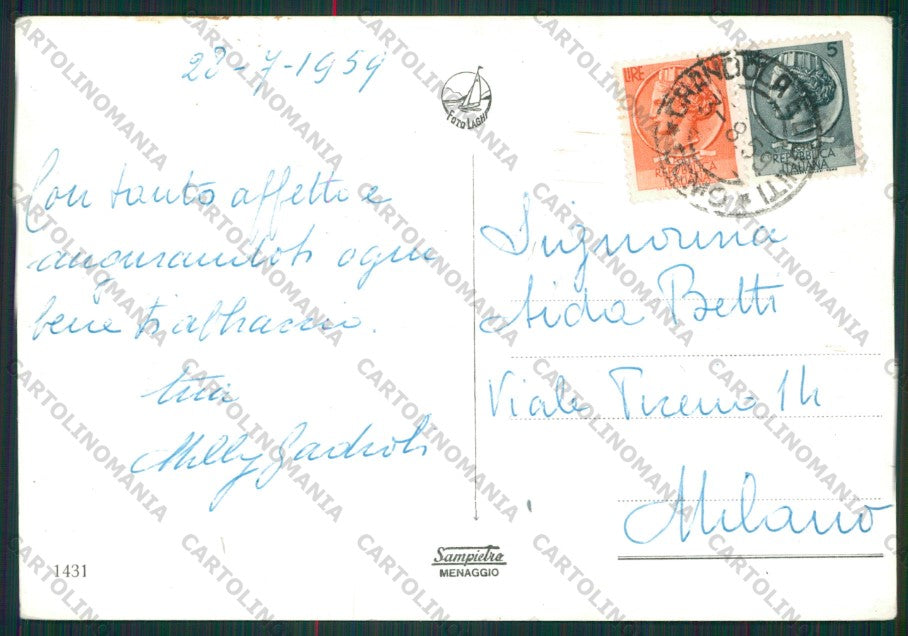 28-7-1959
Con tanto affetto e
augurandoti ogni
bene ti abbraccio.
tua
Milly
FOTO LAGHI
LIRE
REPUBBLICA
ITALIANA
5
REPUBBLICA
ITALIANA
GRANDOLA ED UNITI * COMO *
Signorina
Aida Betti
Viale Tirreno 14
Milano
Sampietro
MENAGGIO
1431
CARTOLINOMANIA